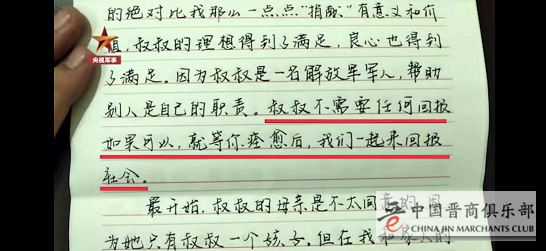 的绝对比我那么一点点“捐献”有意义和价
值,叔叔的理想得到了满足,良心也得到
了满足。因为叔叔是一名解放军军人,帮助
别人是自己的职责。叔叔不需要任何回报
如果可以,就等你痊愈后,我们一起来回报
社会。
最开始,叔叔的母亲是不太同意的,因
为她只有叔叔一个孩子。但在我和家人的
央视军事
晋 中国晋商俱乐部
CHINA JIN MARCHANTS CLUB